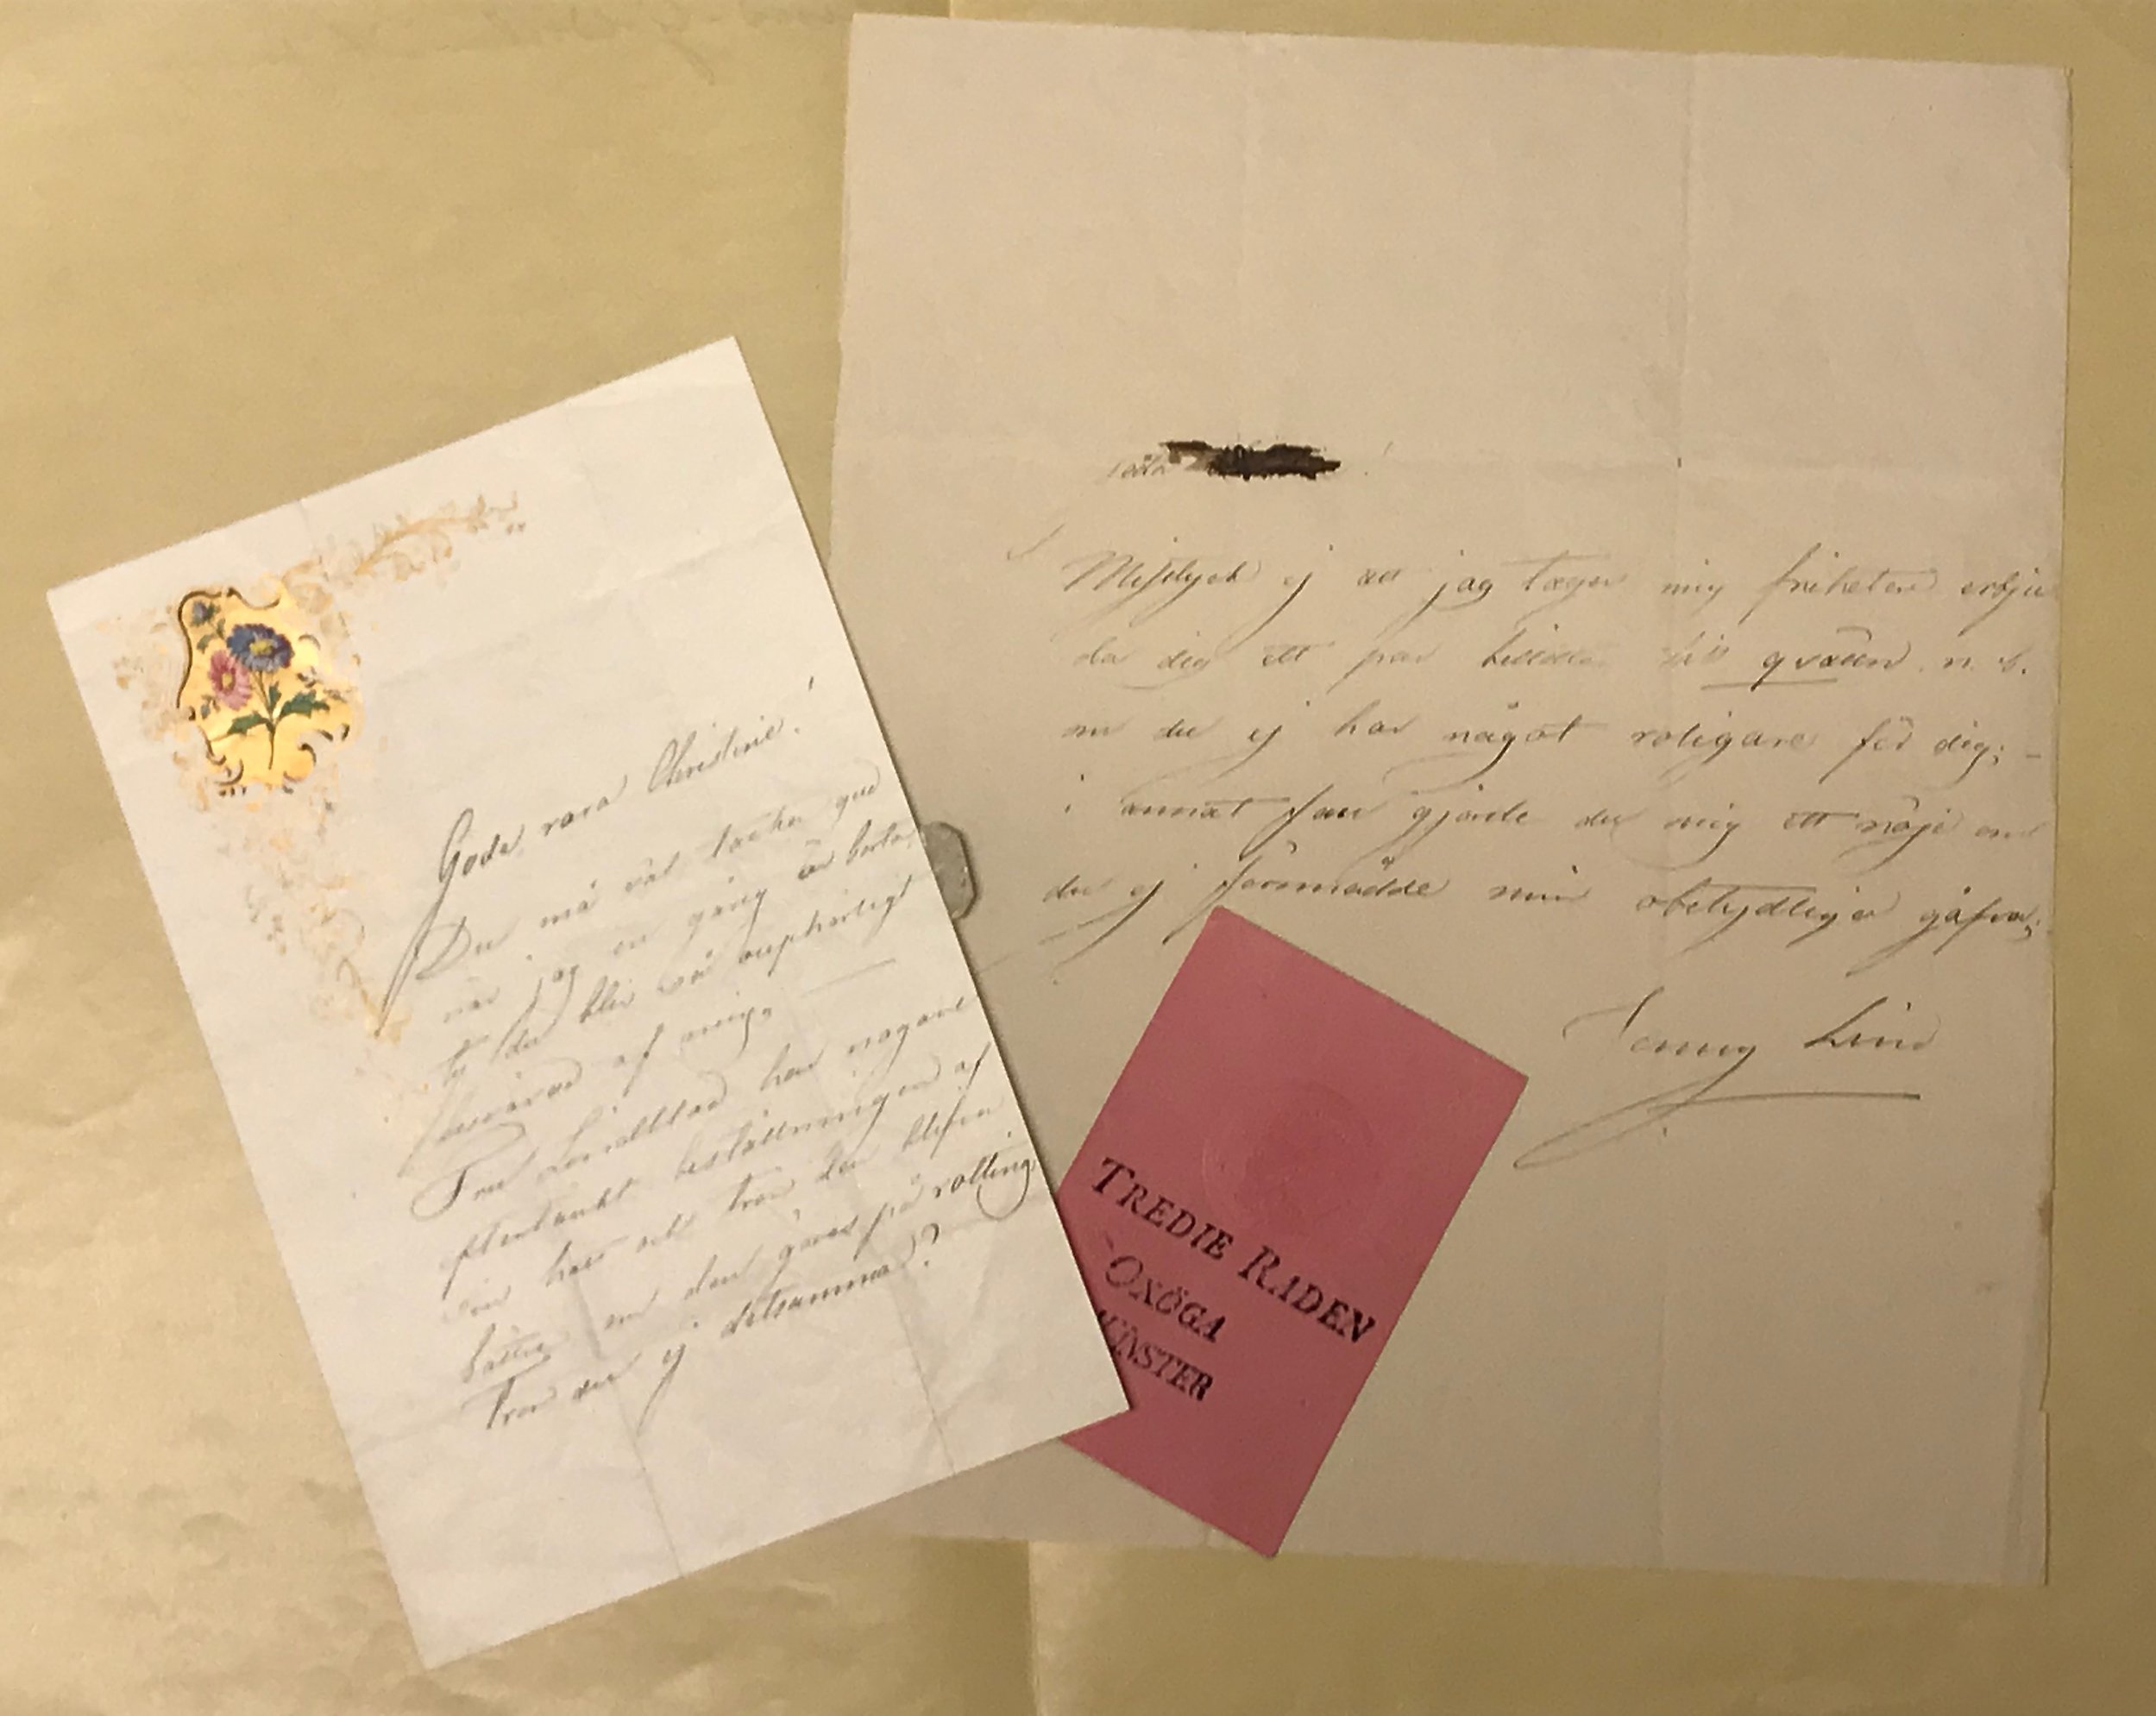 Goda rara Christine!
Du må väl tacka gud
när jag en gång är borta,
ty du blir så oupphörligt
besvärad af mig.
Fru Lindblad har nogare
eftertänkt beställningen af
och tror den blifva
bättre om den göres på rotting.
Tror du ej detsamma?
Goda !
Misstyck ej att jag tager mig friheten erbju
da dig ett par billetter till qvällen. n.b.
om du ej har något roligare för dig; –
i annat fall gjorde du mig ett nöje om
du ej försmådde min obetydliga gåfva;
Jenny Lind
TREDIE RADEN
OXÖGA
VÄNSTER